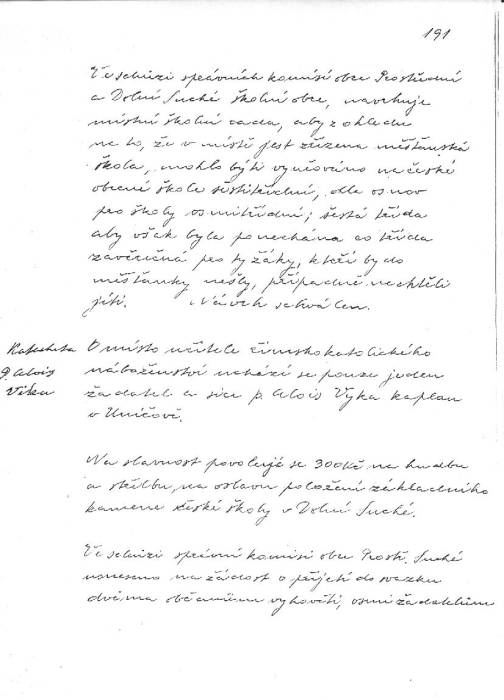 191
Ve schůzi správních komisí obce Prostřední
a Dolní Suché školní obce, navrhuje
místní školní rada, aby z ohledu
na to, že v místě jest zřízena měšťanská
škola, mohlo býti vyučováno na české
obecní škole šestitřídní, dle osnov
pro školy osmitřídní; šestá třída
aby však byla ponechána co třída
závěrečná pro ty žáky, kteří by do
měšťanky nešly, případně nechtěli
jíti. Návrh schválen.
Katecheta
P. Alois
Vyka
O místo učitele římskokatolického
náboženství uchází se pouze jeden
žadatel a sice p. Alois Vyka kaplan
v Uničově.
Na slavnost povoluje se 300 Kč na hudbu
a střelbu, na oslavu položení základního
kamene české školy v Dolní Suché.
Ve schůzi správní komisi obce Prostř. Suché
usneseno na žádost o přijetí do svazku
dvěma občanům vyhověti, osmi žadatelům